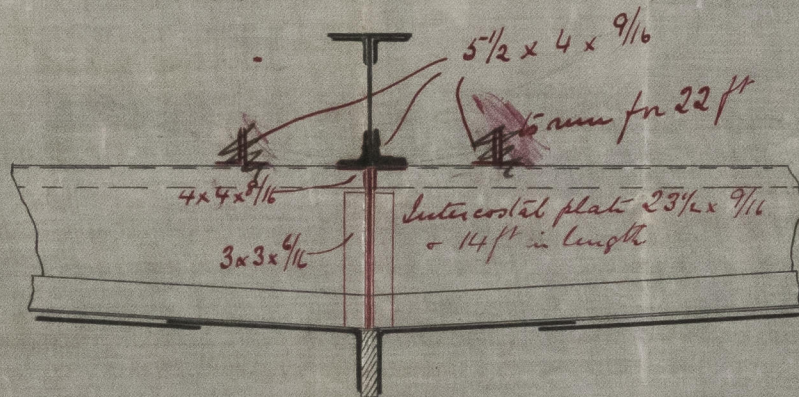 5 1/2 x 4 x 9/16
to run for 22 ft
4 x 4 x 8/16
Intercostal plate 23 1/2 x 9/16
14 ft in length
3 x 3 x 6/16